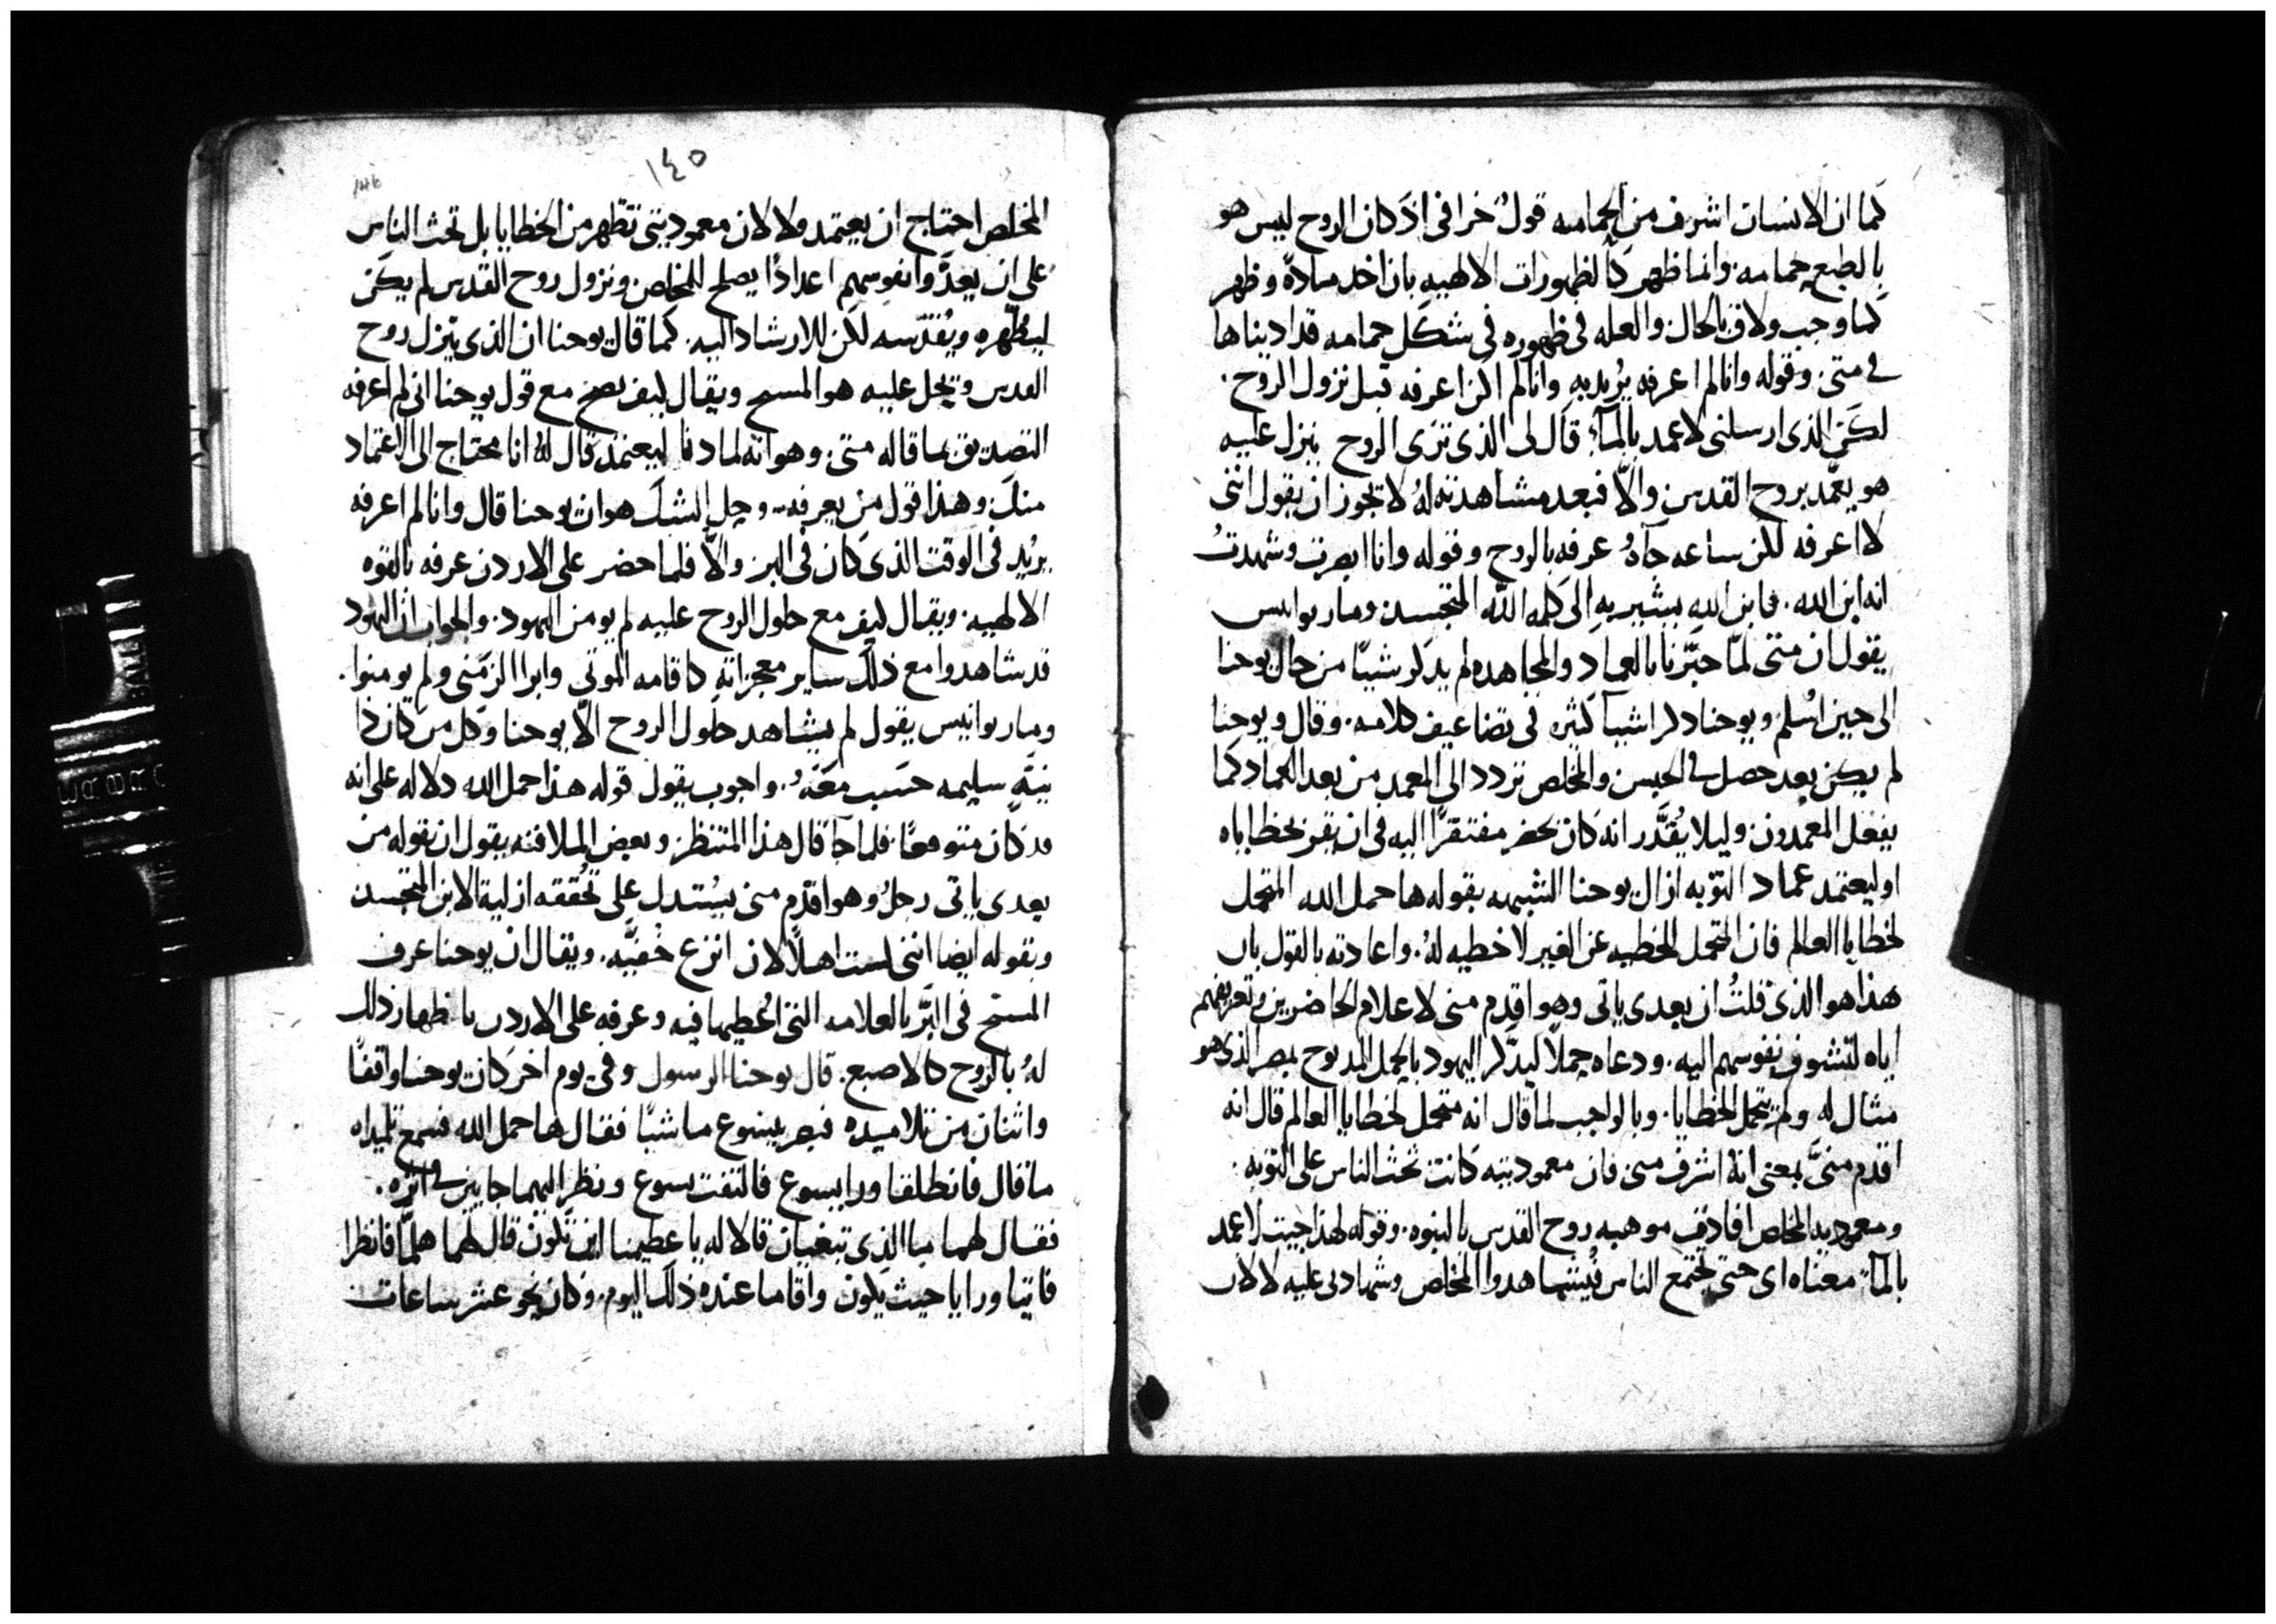 كما ان الانسان اشرف من الحمامه قول خرافى اذ كان الروح ليس هو
بالطبع حمامه. وانما ظهر كالظهورات الالهيه بان اخد مادة وظهر
كما وجب ولاق بالحال والعله فى ظهوره فى شكل حمامه قد ادبناها
فى متى. وقوله وانا لم اعرفه يريد به وانا لم اكن اعرفه قبل نزول الروح.
لكن الذى ارسلنى لاعمد بالمآء قال لى الذى ترى الروح ينزل عليه
هو يعمد بروح القدس والّا فبعد مشاهدته له لا يجوز ان يقول اننى
لا اعرفه لكن ساعه جآه عرفه بالروح وقوله وانا ابصرت وشهدت
انه ابن الله. فابن الله يشير به الى كلمه الله المتجسد ومار يوانيس
يقول ان متى لمّا خبّرنا بالعماد والمجاهده لم يدكر شيئا من حال يوحنا
الى حين اسلم ويوحنا دكر اشيآ كثيره فى تضاعيف كلامه. وقال ويوحنا
لم يكن بعد حصل فى الحبس والمخلص تردد الى المعمد من بعد العماد كما
يفعل المعمدون وليلا يقدّر انه كان يحضر مفتقرًا اليه فى ان يقر بخطاياه
او ليعتمد عماد التوبه ازال يوحنا الشبهه بقوله ها حمل الله المتحمل
لخطايا العالم فان المتحمل للخطيه عن الغير لا خطيه له. واعادته بالقول بان
هذا هو الذى قلت ان بعدى ياتى وهو اقدم منى لاعلام الحاضرين وتعريفهم
اياه لتتشوف نفوسهم اليه. ودعاه حملًا ليدكر اليهود بالحمل المدبوح بمصر الذى هو
مثال له ولم يتحمل الخطايا. وبالواجب لما قال انه متحمل لخطايا العالم قال انه
اقدم منىّ بمعنى انه اشرف منى فان معموديته كانت تحث الناس على التوبه.
ومعموديه المخلص افادت موهبه روح القدس بالنبوه. وقوله لهذا جيت لاعمد
بالمآ. معناه اى حتى يجتمع الناس فيشاهدوا المخلص وشهادتى عليه لا لان
١٤٥
المخلص احتاج ان يعتمد ولا لان معموديتى تطهر من الخطايا بل تحث الناس
على ان يعدّوا نفوسهم اعدادًا يصلح للمخلص ونزول روح القدس لم يكن
ليطهره ويقدّسه لكن للارشاد اليه. كما قال يوحنا ان الذى ينزل روح
القدس ويحل عليه هو المسيح ويقال كيف يصح مع قول يوحنا انى لم اعرفه
التصديق بما قاله متى. وهو انه لما دنا ليعتمد قال له انا محتاج الى الاعتماد
منك وهذا قول من يعرفه. وحل الشك هو ان يوحنا قال وانا لم اعرفه
يريد فى الوقت الذى كان فى البر والّا فلما حضر على الاردن عرفه بالقوه
الالهيه. ويقال كيف مع حلول الروح عليه لم يومن اليهود. والجواب ان اليهود
قد شاهدوا مع ذلك ساير معجزاته كاقامه الموتى وابرا الزمنى ولم يومنوا.
ومار يوانيس يقول لم يشاهد حلول الروح الّا يوحنا وكل من كان ذا
نيّه سليمه حسب معه. واجوب يقول قوله هذا حمل الله دلاله على انه
قد كان متوقعًا. فلما جآ قال هذا المنتظر وبعض الملافنه يقول ان بقوله من
بعدى ياتى رجل وهو اقدم منى يستدل على تحققه ازلية الابن المتجسد
وبقوله ايضا اننى لست اهلًا لان انزع خفيّه. ويقال ان يوحنا عرف
المسيح فى البرّ بالعلامه التى اعطيها فيه وعرفه على الاردن باظهار ذلك
له بالروح كالاصبع. قال يوحنا الرسول وفى يوم اخر كان يوحنا واقفًا
واثنان من تلاميده فبصر بيسوع ماشيًا فقال ها حمل الله فسمع تلميداه
ما قال فانطلقا ورا يسوع فالتفت يسوع ونظر اليهما جايين فى اثره.
فقال لهما ما الذى تبغيان قالا له يا عظيمنا اين تكون قال لهما هلمّا فانظرا
فاتيا ورايا حيث يكون واقاما عنده ذلك اليوم. وكان نحو عشر ساعات